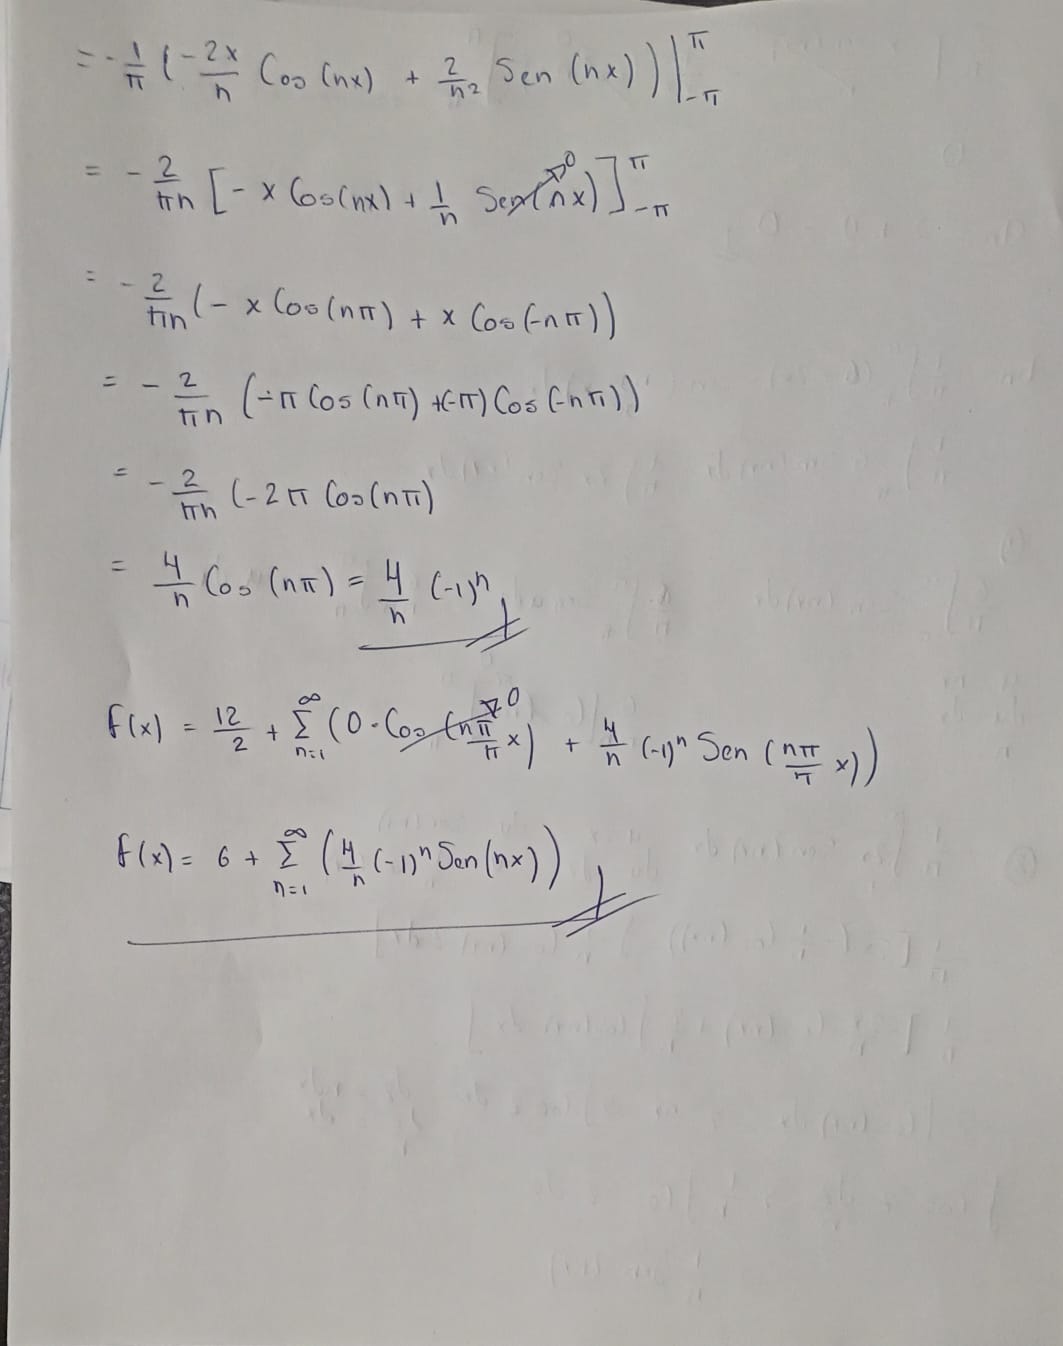 = -1/π (-2x/n Cos (nx) + 2/n² Sen (nx)) |π -π
= -2/πn [-x Cos(nx) + 1/n Sen(nx)→0 ]π -π
= -2/πn (-x Cos(nπ) + x Cos(-nπ))
= -2/πn (-π Cos (nπ) +(-π) Cos (-nπ))
= -2/πn (-2π Cos(nπ)
= 4/n Cos (nπ) = 4/n (-1)ⁿ
f(x) = 12/2 + ∞Σn=1 (0·Cos (nπ/π x)→0 + 4/n (-1)ⁿ Sen (nπ/π x))
f(x) = 6 + ∞Σn=1 (4/n (-1)ⁿ Sen(nx))